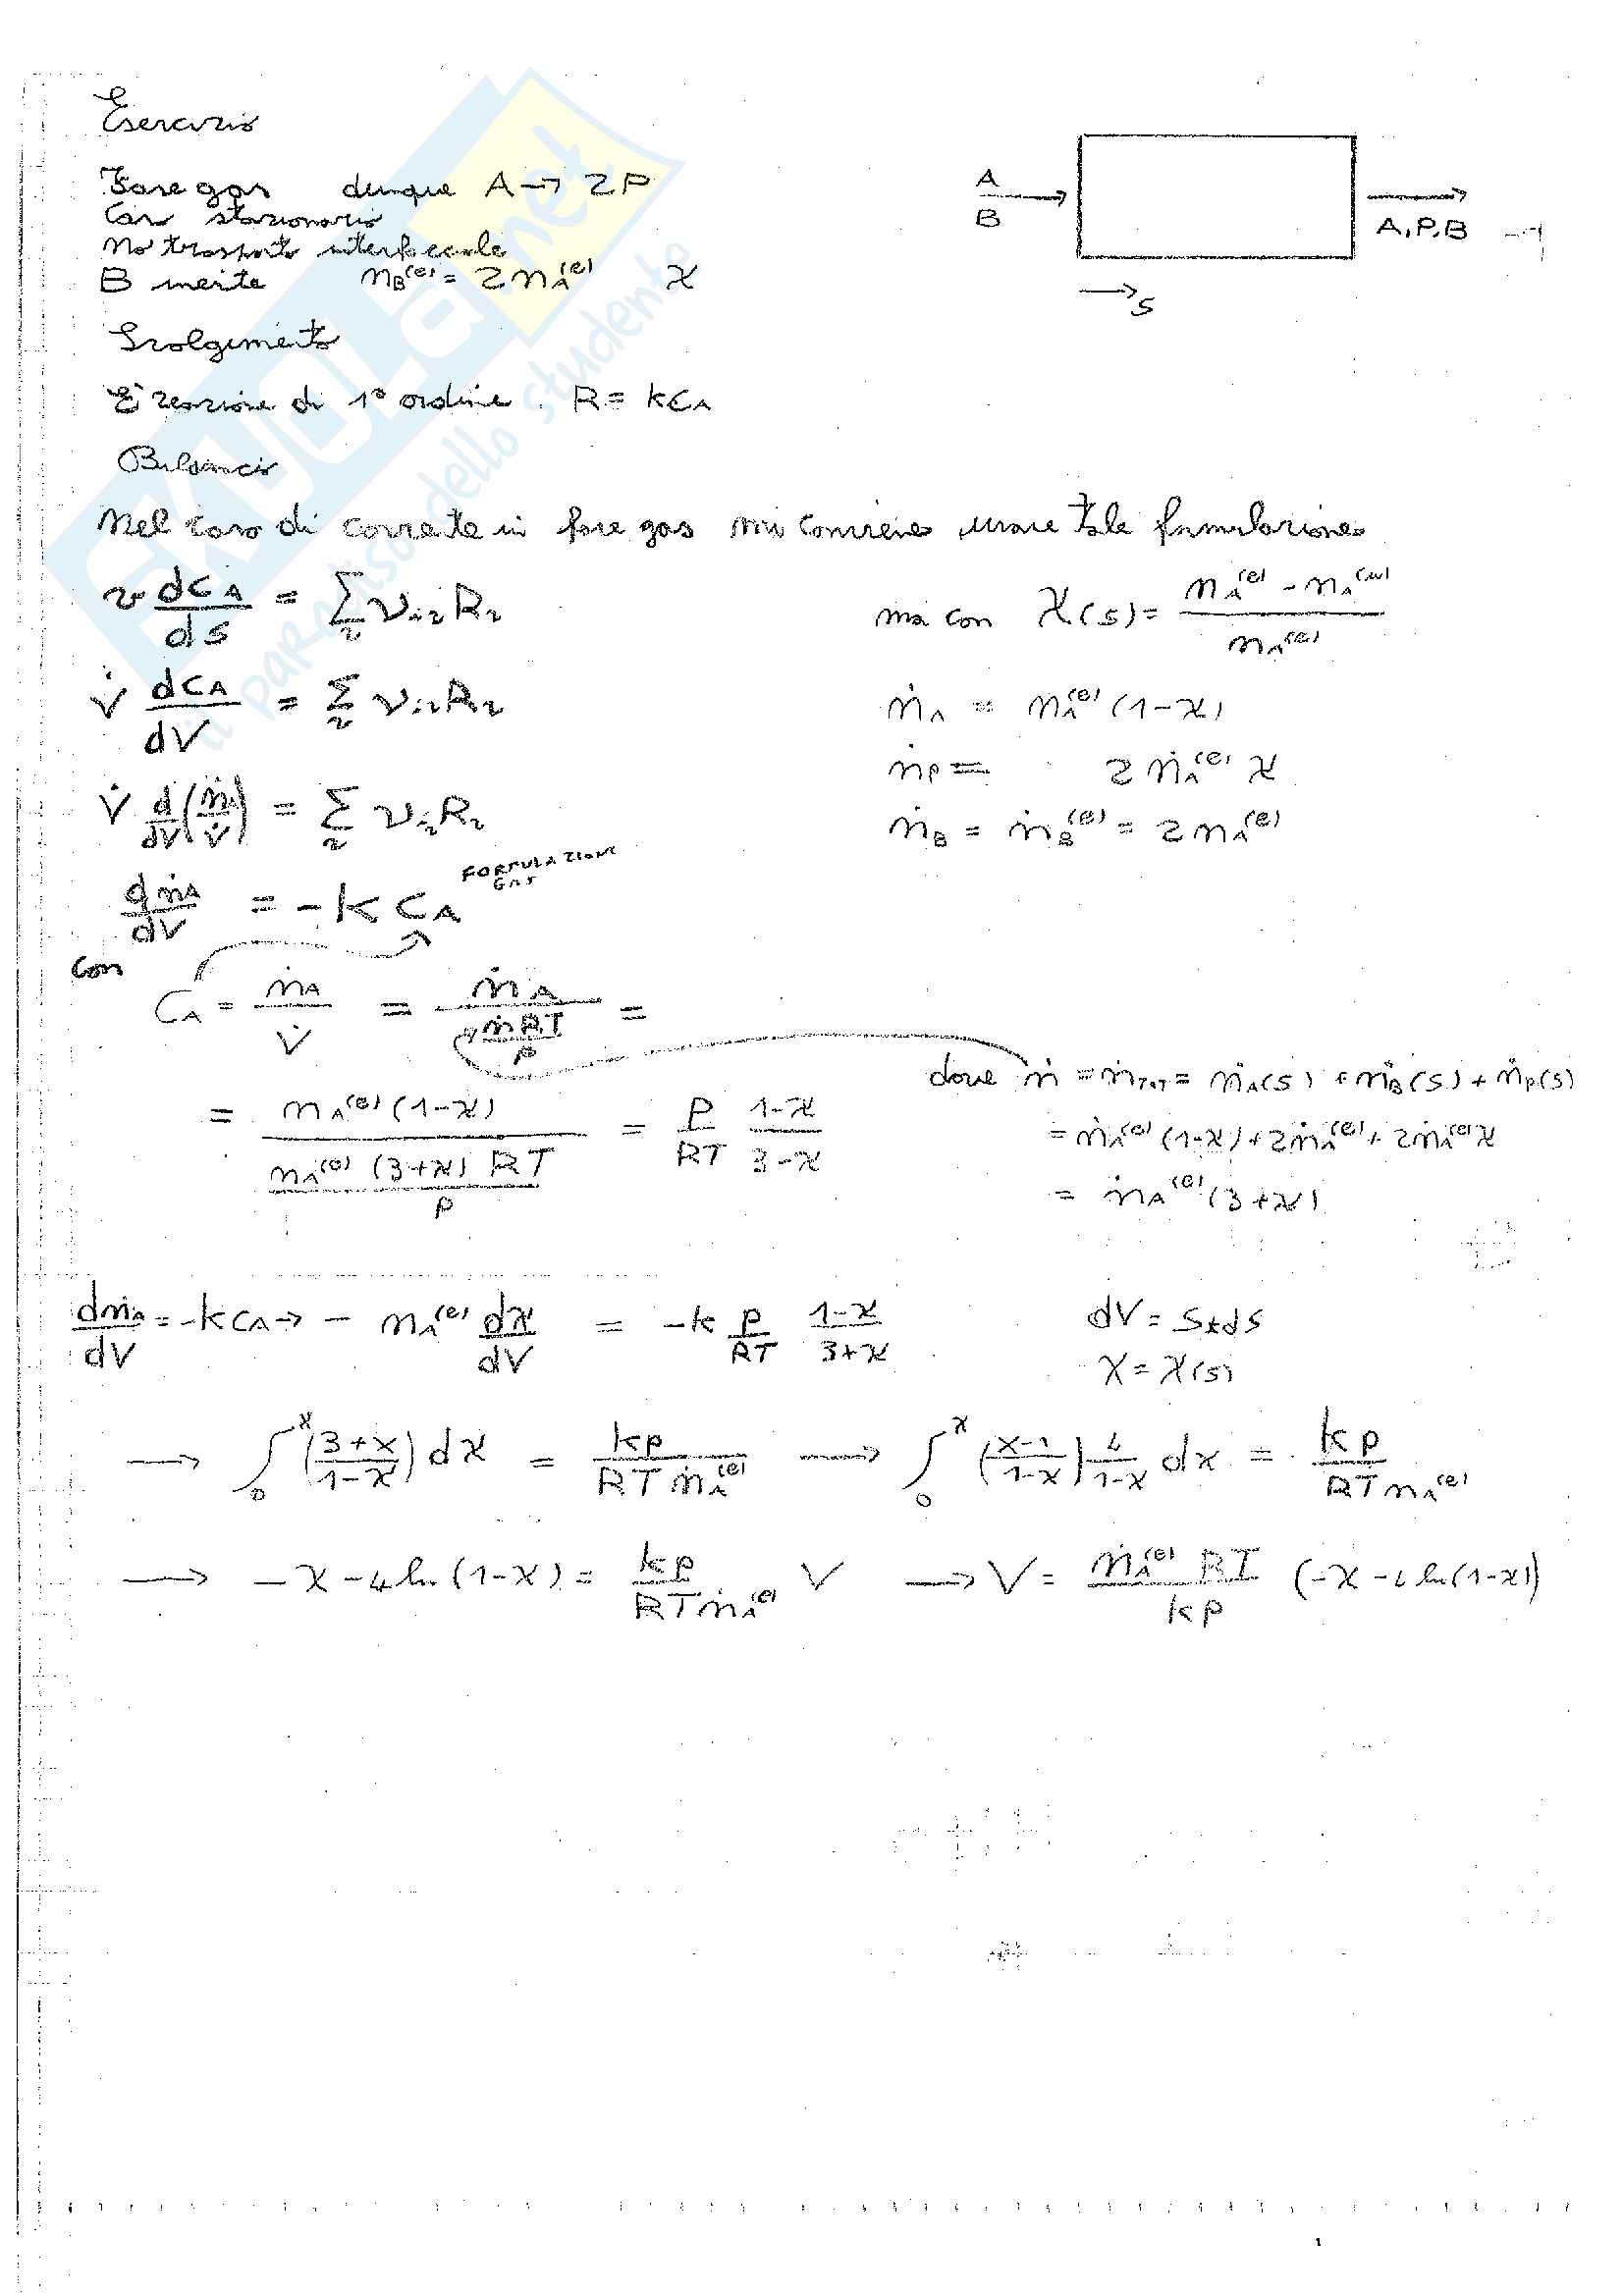 Esercizio
Fase gas dunque A → 2P
Caso stazionario
No trasporto interfacciale
B inerte n_B^(e) = 2 n_A^(e) χ
A
B
A, P, B
→ s
Svolgimento
È reazione di 1° ordine. R = k C_A
Bilancio
Nel caso di corrente in fase gas mi conviene usare tale formulazione
v dC_A/ds = Σ_r ν_ir R_r
ma con χ(s) = (n_A^(e) - n_A^(u)) / n_A^(e)
V̇ dC_A/dV = Σ_r ν_ir R_r
ṅ_A = n_A^(e) (1-χ)
ṅ_P = 2 ṅ_A^(e) χ
V̇ d/dV (ṅ/V̇) = Σ_r ν_ir R_r
ṅ_B = ṅ_B^(e) = 2 n_A^(e)
dṅ_A/dV = -k C_A FORMULAZIONE GAS
con
C_A = ṅ_A/V̇ = ṅ_A / (ṅRT/p) =
dove ṅ = ṅ_TOT = ṅ_A(s) + ṅ_B(s) + ṅ_P(s)
= n_A^(e) (1-χ) / (n_A^(e) (3+χ) RT / p) = P/RT (1-χ)/(3-χ)
= ṅ_A^(e) (1-χ) + 2ṅ_A^(e) + 2ṅ_A^(e) χ
= ṅ_A^(e) (3+χ)
dṅ_A/dV = -k C_A → - n_A^(e) dχ/dV = -k p/RT (1-χ)/(3+χ)
dV = S * ds
χ = χ(s)
→ ∫_0^χ ((3+χ)/(1-χ)) dχ = kp / (RT ṅ_A^(e)) → ∫_0^χ ((χ-1)/(1-χ)) 4/(1-χ) dχ = kp / (RT n_A^(e))
→ -χ - 4 ln(1-χ) = kp / (RT ṅ_A^(e)) V → V = ṅ_A^(e) RT / kp (-χ - 4 ln(1-χ))
1
il paradiso dello studente